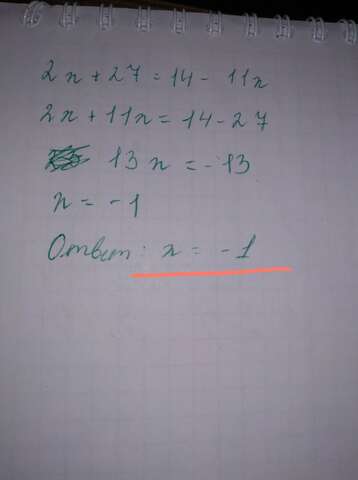 2x + 27 = 14 - 11x
2x + 11x = 14 - 27
13x = -13
x = -1
Ответ: x = -1